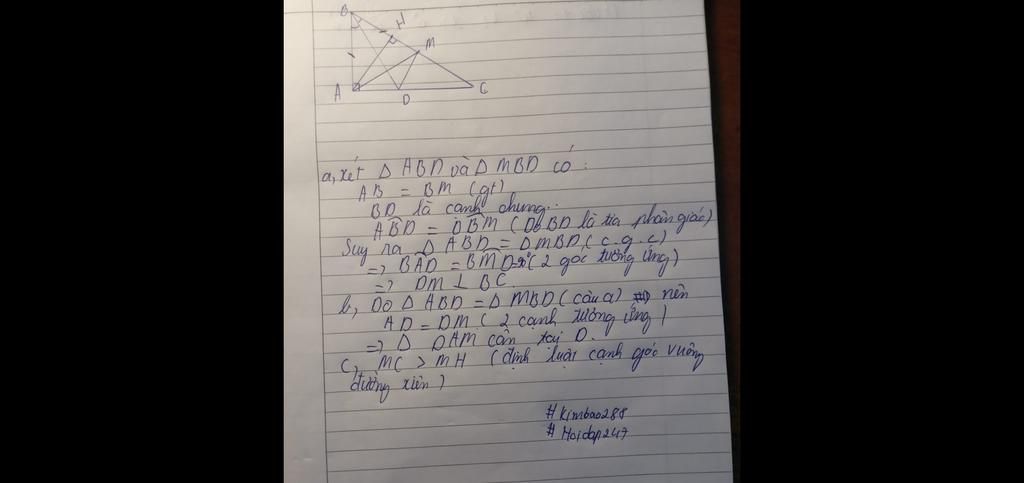 B
H
M
A
D
C
a, xét Δ ABD và Δ MBD có :
AB = BM (gt)
BD là cạnh chung..
ABD = DBM (Do BD là tia phân giác)
Suy ra Δ ABD = ΔMBD, (c.g.c)
=> BAD = BMD=90° (2 góc tương ứng)
=> DM ⊥ BC.
b, Do Δ ABD = Δ MBD (câu a) nên
AD = DM ( 2 cạnh tương ứng )
=> Δ DAM cân tại D.
C, MC > MH (định luật cạnh góc vuông
đường xiên )
#Kimbao288
#Hoidap247